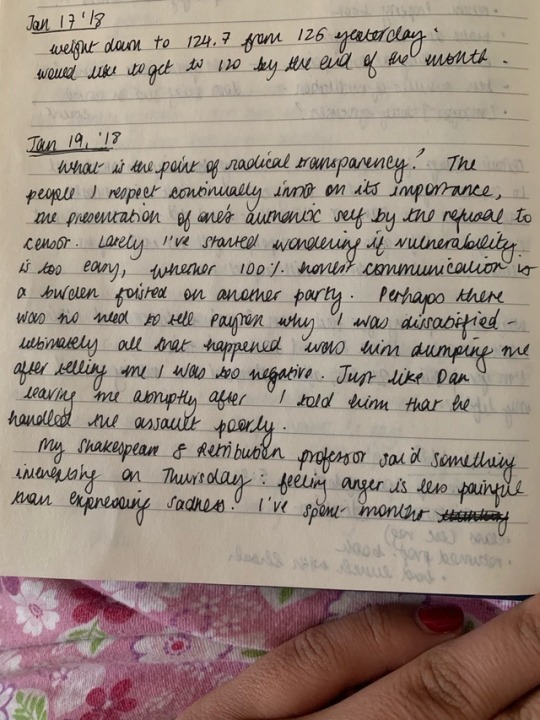 Jan 17 '18
weight down to 124.7 from 126 yesterday.
would like to get to 120 by the end of the month.
Jan 19, '18
What is the point of radical transparency? The
people I respect continually insist on its importance,
the presentation of one's authentic self by the refusal to
censor. Lately I've started wondering if vulnerability
is too easy, whether 100% honest communication is
a burden foisted on another party. Perhaps there
was no need to tell Payton why I was dissatisfied -
ultimately all that happened was him dumping me
after telling me I was too negative. Just like Dan
leaving me abruptly after I told him that he
handled the assault poorly.
My Shakespeare & Retribution professor said something
interesting on Thursday: feeling anger is less painful
than expressing sadness. I've spent months